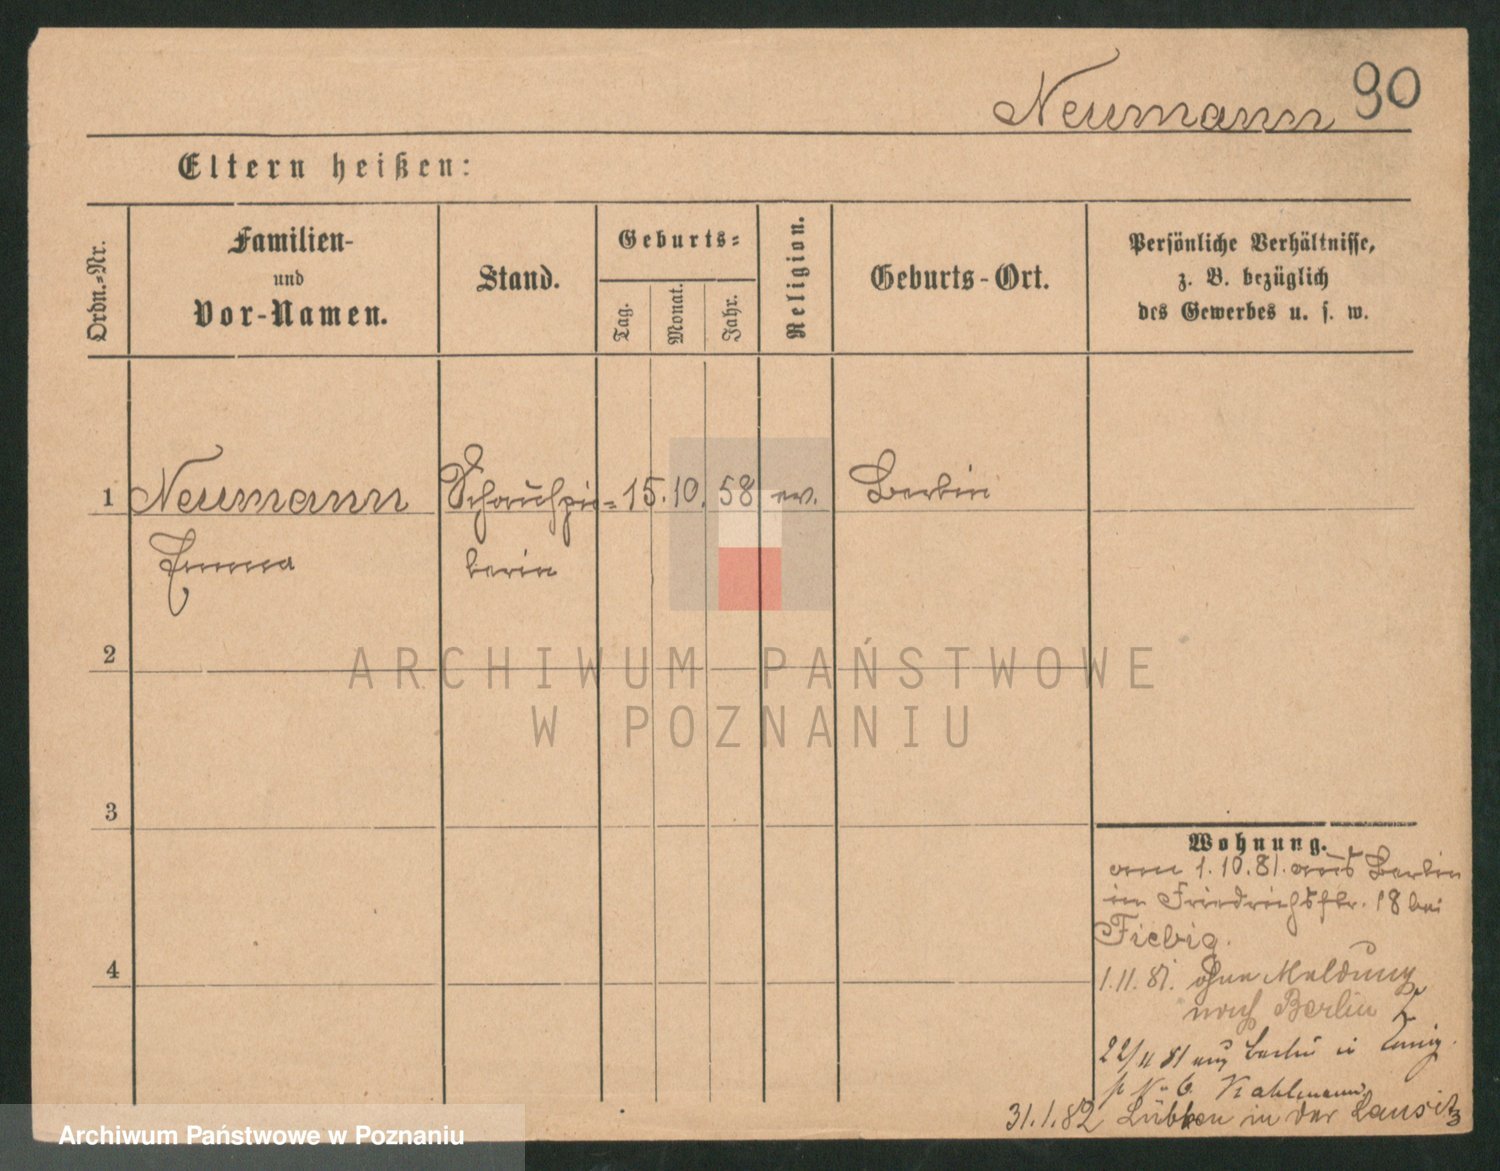 Neumann 90
Eltern heißen:
Ordn.-Nr.
Familien-
und
Vor-Namen.
Stand.
Geburts-
Tag.
Monat.
Jahr.
Religion.
Geburts-Ort.
Persönliche Verhältnisse,
z. B. bezüglich
des Gewerbes u. s. w.
1 Neumann Schauspie= 15. 10. 58 ev. Berlin
Emma lerin
2
ARCHIWUM PAŃSTWOWE
W POZNANIU
3
4
Wohnung.
am 1.10.81. aus Berlin
in Friedrichstr. 18 bei
Fiebig.
1.11.81. ohne Meldung
nach Berlin
22/11 81 aus Berlin in
Kahlmann
31.1.82 Lübben in der Lausitz
Archiwum Państwowe w Poznaniu